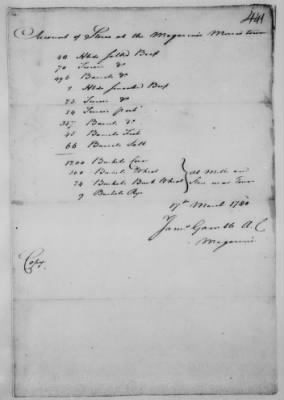 441
Account of Stores at the Magazine Morris town
40 Hhds Salted Beef
70 Tierces do
496 Barrels do
7 Hhds Smoked Beef
73 Tierces do
54 Tierces pork
387 Barrels do
45 Barrels Fish
66 Barrels Salt
1200 Bushels Corn
300 Bushels Wheat } at Mills and
24 Bushels Buck Wheat } near Town
9 Bushels Rye
17th March 1780
Jams Gamble A.C
Magazine
Copy